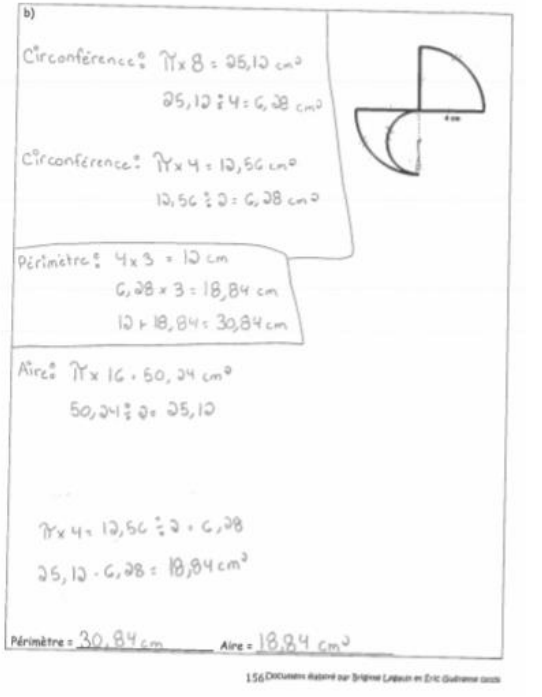 b)
Circonférence: π x 8 = 25,12 cm²
25,12 ÷ 4 = 6,28 cm²
4 cm
Circonférence: π x 4 = 12,56 cm²
12,56 ÷ 2 = 6,28 cm²
Périmètre: 4 x 3 = 12 cm
6,28 x 3 = 18,84 cm
12 + 18,84 = 30,84 cm
Aire: π x 16 = 50,24 cm²
50,24 ÷ 2 = 25,12
π x 4 = 12,56 ÷ 2 = 6,28
25,12 - 6,28 = 18,84 cm²
Périmètre = 30,84 cm Aire = 18,84 cm²
156 Document élaboré par Brigitte et Éric